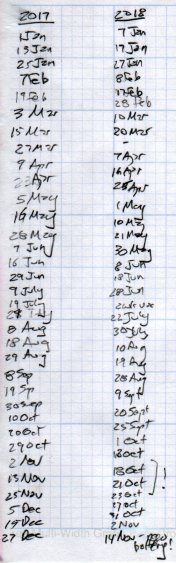 2017 2018
1 Jan 7 Jan
13 Jan 17 Jan
25 Jan 27 Jan
7 Feb 8 Feb
19 Feb 17 Feb
28 Feb
3 Mar 10 Mar
15 Mar 20 Mar
27 Mar -
9 Apr 7 Apr
23 Apr 16 Apr
25 Apr
5 May 1 May
16 May 10 May
28 May 21 May
7 Jun 30 May
16 Jun 8 Jun
29 Jun 18 Jun
9 July 28 Jun
19 July
28 July 22 July
8 Aug 30 July
18 Aug 10 Aug
29 Aug 19 Aug
8 Sep 28 Aug
19 Sep 9 Sept
30 Sep 20 Sept
10 Oct 25 Sept
20 Oct 1 Oct
29 Oct 13 Oct
2 Nov 18 Oct
13 Nov 21 Oct !
25 Nov 23 Oct
5 Dec 27 Oct
15 Dec 2 Nov
27 Dec 14 Nov - new battery!